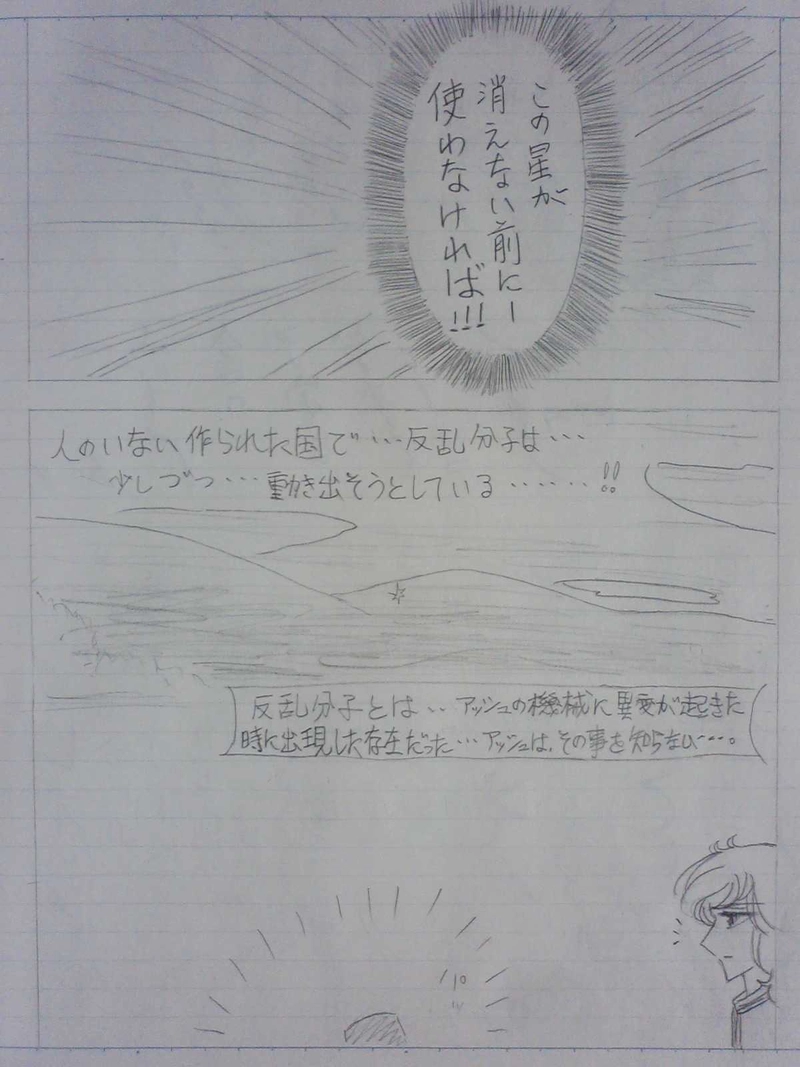 この星が
消えない前にー
使わなければ!!!
人のいない作られた国で‥‥反乱分子は‥‥
少しづつ‥‥動き出そうとしている‥‥‥‥!!
反乱分子とは‥‥アッシュの機械に異変が起きた
時に出現した存在だった‥‥アッシュは、その事を知らない‥‥。